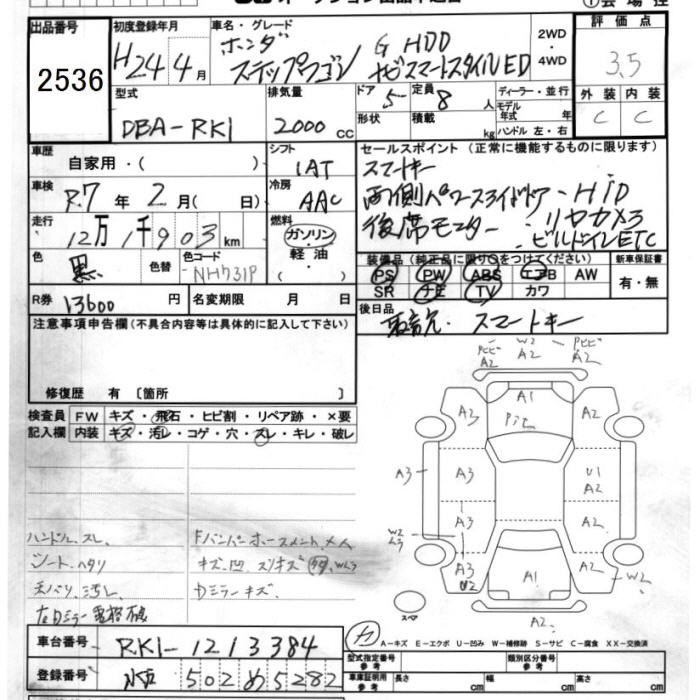 オークション出品申込書
①会場控
出品番号 2536
初度登録年月 H24 4月
車名・グレード
ホンダ G HDD
ステップワゴン ナビスマートスタイルED
2WD・4WD
評価点 3.5
外装 内装
C C
型式 DBA-RK1
排気量 2000 cc
ドア 5 定員 8 人
形状 積載 kg
ディーラー・並行
モデル年式 年
ハンドル 左・右
車歴 自家用・( )
シフト IAT
車検 R.7年 2月( 日)
冷房 AAC
走行 12万1千903km
燃料 ガソリン・軽油・( )
色 黒 色替 色コード NH731P
R券 13600円 名変期限 月 日
セールスポイント(正常に機能するものに限ります)
スマートキー
両側パワースライドドア-HID
後席モニター・リヤカメラ
ビルドインETC
装備品(純正品に限り○をつけてください)
PS PW ABS エアB AW
SR ナビ TV カワ
新車保証書 有・無
後日品 取説、スマートキー
注意事項申告欄(不具合内容等は具体的に記入して下さい)
修復歴 有〔箇所 〕
検査員記入欄
FW キズ・飛石・ヒビ割・リペア跡・×要
内装 キズ・汚レ・コゲ・穴・スレ・キレ・破レ
ハンドル、スレ
シート ヘタリ
天バリ、汚レ
Fバンパー
キズ、凹 スリキズ
Dミラーキズ
車台番号 RK1-1213384
登録番号 502 め 5282
ピビ A2 W2 A2 Pピビ A2
A1
A3 ピビ A2
A3 A3 U1 A2
W2 U3 A3 A2
A3 U2 A1 A2 W2
A2
スペア
A-キズ E-エクボ U-凹み W-補修跡 S-サビ C-腐食 XX-交換済
型式指定番号 参考 類別区分番号 参考
車庫証明用 参考 長さ cm 幅 cm 高さ cm